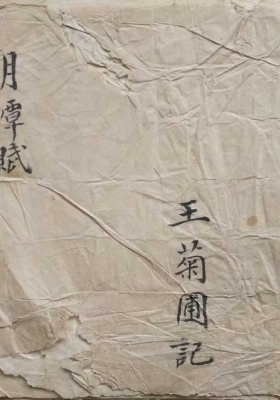 王菊圃記
月覃賦